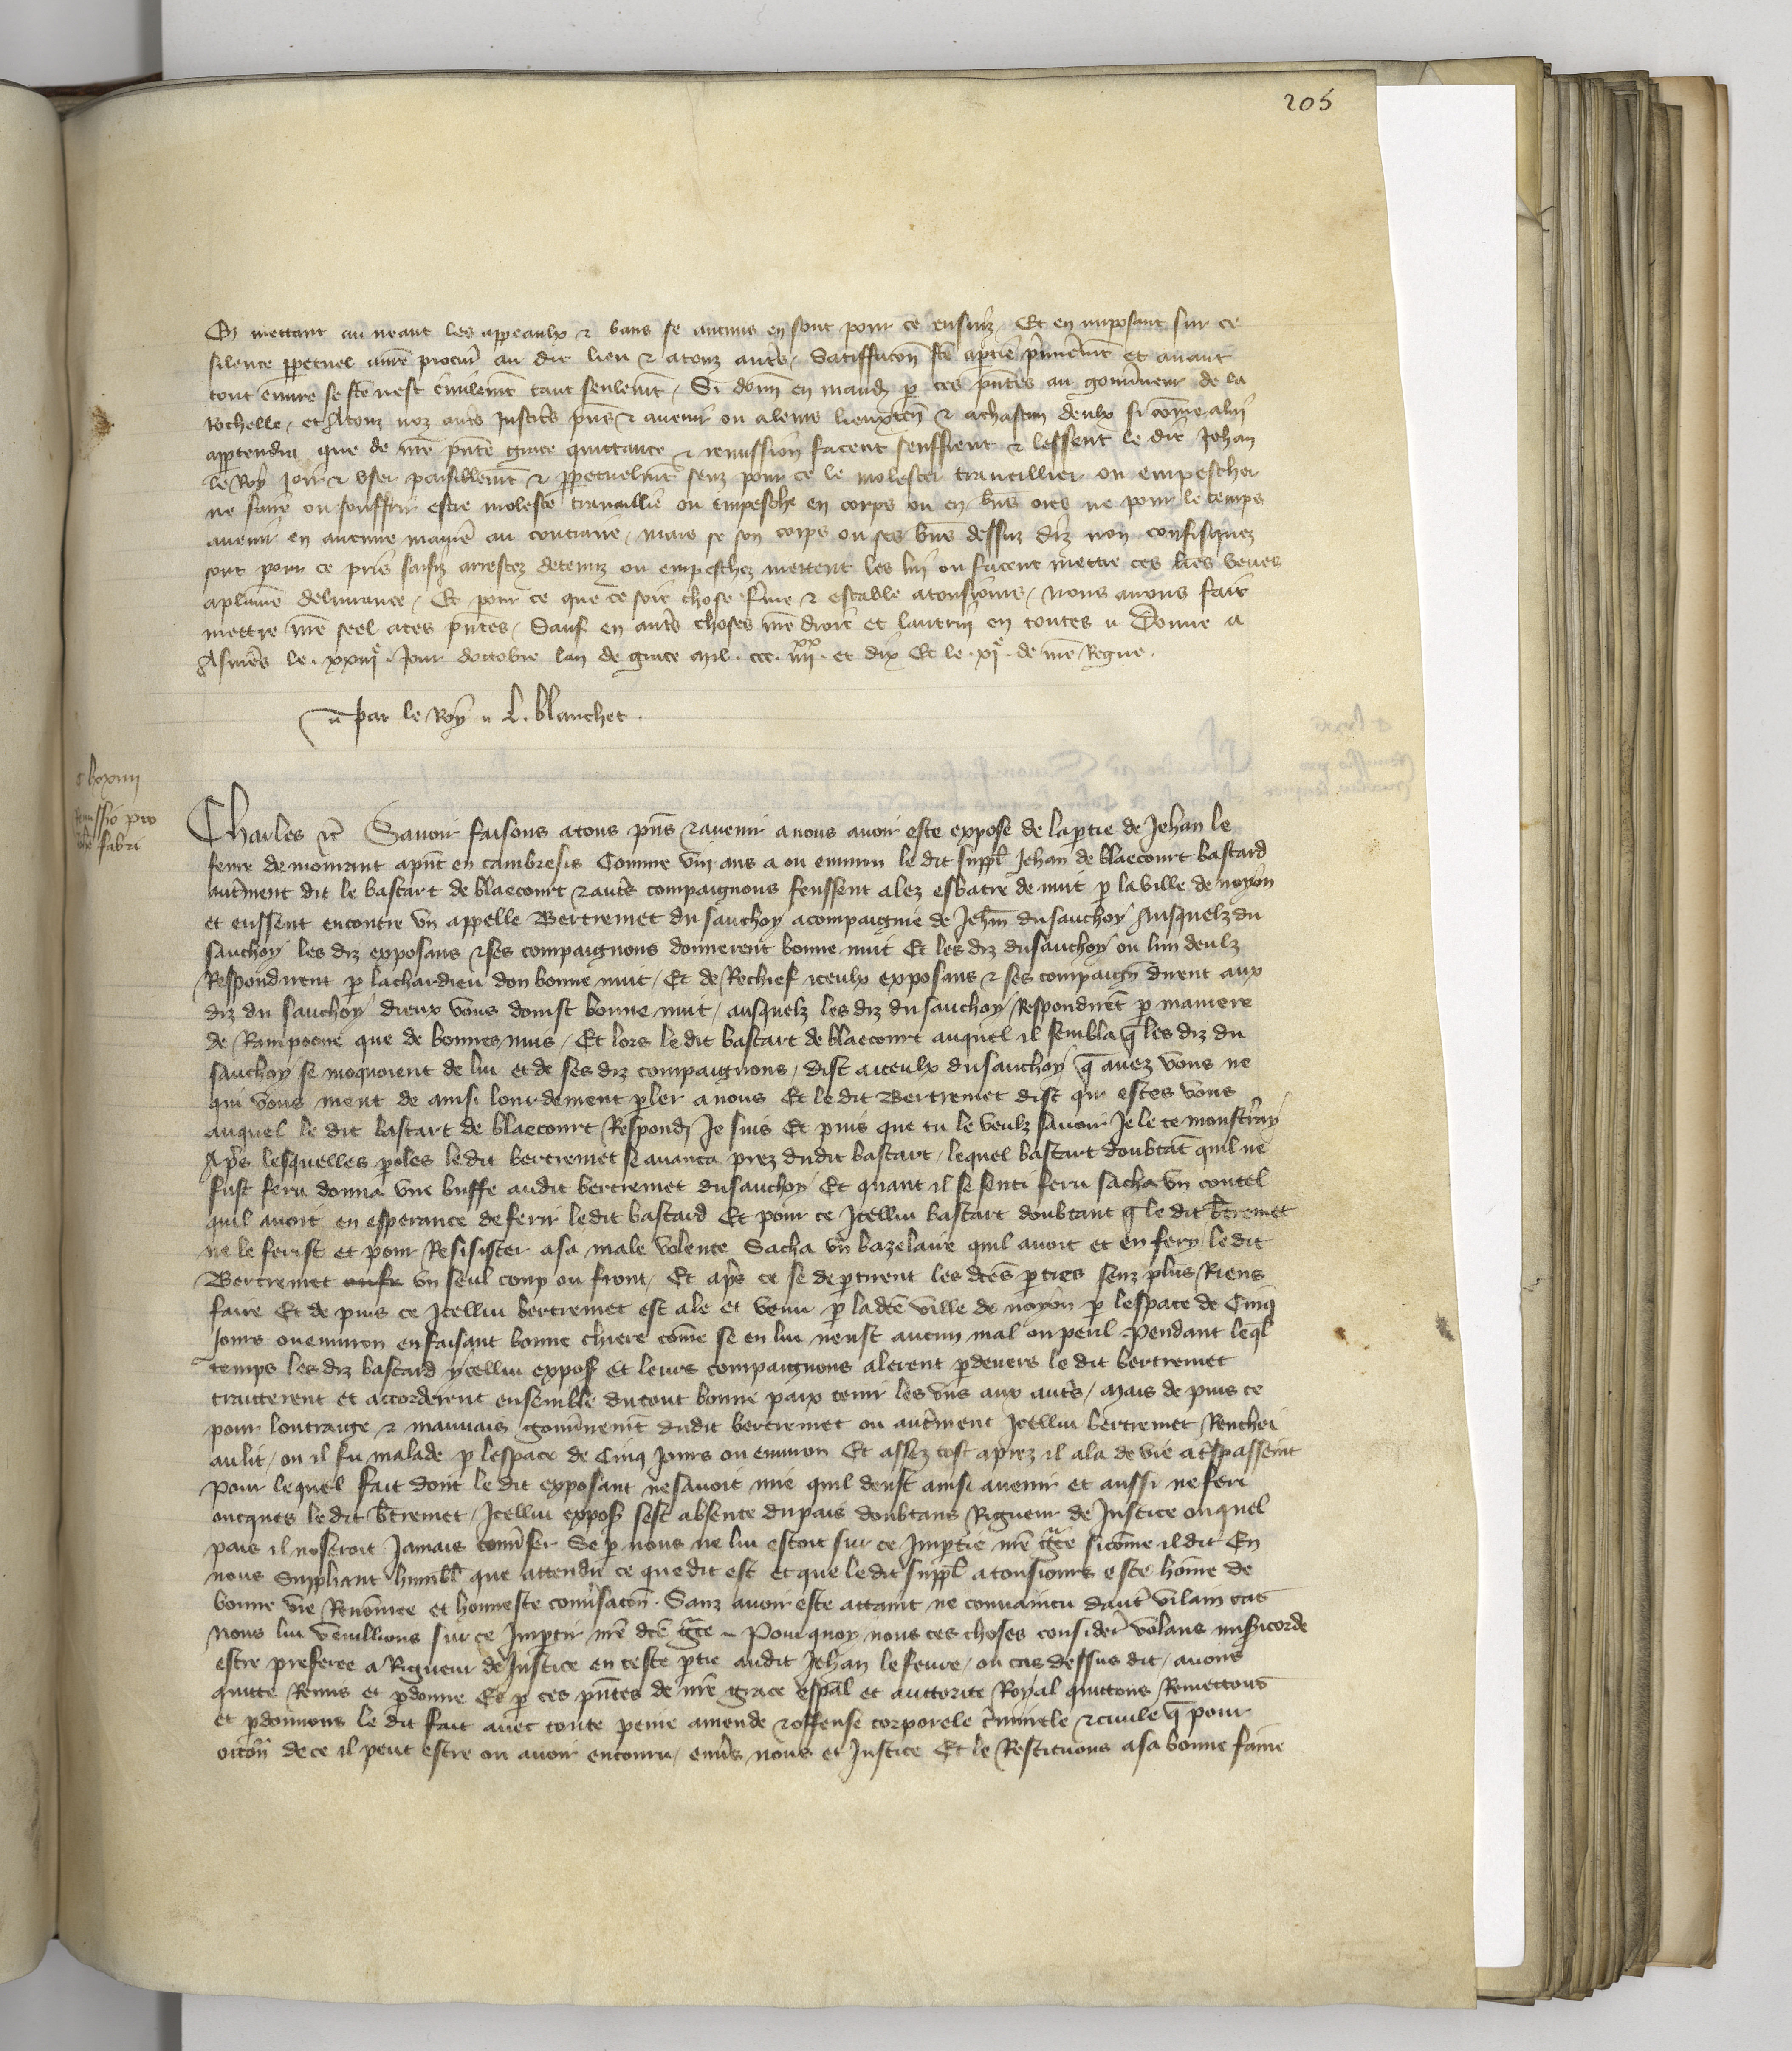 205
En mettant au neant les appeaulx & bans se aucuns en sont pour ce ensuiz / Et en imposant sur ce
silence ppetuel a nr̃e procur̃ au dit lieu & a touz autrẽs / Satisfacõn fcẽ a ptie p̃mierem̃t et avant
tout euvre se fcẽ nest civilem̃t tant seulem̃t / Si donn̄ en mand̃ p ces pñtes au gouv̄neur de la
Rochelle / et A touz noz autrẽs Justicĩers pñs & avenir ou a leurs lieuxten̄ & a chascun deulx si com̃e a lui
apptendra que de nr̃e pñte grace quittance & remission facent seuffrent & lessent le dit Jehan
le Roy Joir & user paisiblem̃t & ppetuelm̃t senz pour ce le molester travaillier ou empescher
ne faire ou souffrir estre moleste travaillie ou empesche en corps ou en biẽns ores ne pour le temps
avenir en aucune manier̃e au contraire / mais se son corps ou ses biẽns dessuz diz non confisquez
sont pour ce pris saisiz arrestez detenuz ou empeschez mettent les lui ou facent mettre ces lr̃es veues
a plaine delivrance / Et pour ce que ce soit chose ferme & estable a tousjours / nous avons fait
mettre nr̃e seel a ces pñtes / Sauf en autrẽs choses nr̃e droit et lautrui en toutes // Donne a
Asnier̃es le . xxiiiie . Jour doctobre lan de grace mil . ccc . iiiixx . et dix Et le . xie . de nr̃e Regne .
// par le Roy // L. blanchet .
c lxxiiii
Remissio pro
Johe fabri
Charles &c̃ Savoir faisons a tous pñs & avenir a nous avoir este expose de la ptie de Jehan le
fevre demourant a pñt en cambresis Comme viii ans a ou environ le dit suppl̃ Jehan de blaecourt bastard
autrẽment dit le bastart de blaecourt & autrẽs compaignons feussent alez esbatre de nuit p la ville de noyon
et eussent encontre un appelle Bertremet du sauchoy acompaignie de Jehan̄ du sauchoy Ausquelz du
sauchoy les diz exposans & ses compaignons donnerent bonne nuit Et les diz du sauchoy ou lun deulz
Respondirent p la char dieu don bonne nuit / Et de Rechief iceulx exposans & ses compaign̄ dirent aux
diz du sauchoy dieux vous doinst bonne nuit / ausquelz les diz du sauchoy Respondirẽt p maniere
de Rampocne que de bonnes nuis / Et lors le dit bastart de blaecourt auquel il sembla q̃ les diz du
sauchoy se moquoient de lui et de ses diz compaignons / dist a iceulx du sauchoy q̃ avez vous ne
qui vous ment de ainsi lourdement pler a nous Et le dit Bertremet dist qui estes vous
auquel le dit bastart de blaecourt Respond̃ Je suis Et puis que tu le veulz savoir Je le te monstrẽray
Ap̃s lesquelles poles le dit bertremet se avanca prez dudit bastart / lequel bastart doubtãt quil ne
fust feru donna une buffe audit bertremet du sauchoy Et quant il se senti feru sacha un coutel
quil avoit en esperance de ferir le dit bastard Et pour ce Jcellui bastart doubtant q̃ le dit b̃tremet
ne le ferist et pour Resisister a sa male volente Sacha un bazelaire quil avoit et en fery le dit
Bertremet un seul coup ou front / Et ap̃s ce se deptirent les dcẽs pties senz plus Riens
faire Et depuis ce Jcellui bertremet est ale et venu p la dcẽ ville de noyon p lespace de Cinq
Jours ou environ en faisant bonne chiere com̃e se en lui neust aucun mal ou peril Pendant leq̃l
temps les diz bastard ycellui expos̃ et leurs compaignons alerent pdevers le dit bertremet
traitterent et accorderent ensemble du tout bonne paix tenir les uns aux autrẽs / Mais depuis ce
pour loutraige & mauvais gouv̄nem̃t dudit bertremet ou autrẽment Jcellui bertremet Renchei
au lit / ou il fu malade p lespace de Cinq Jours ou environ Et assez tost aprez il ala de vie a trẽspassem̃t
Pour lequel fait dont le dit exposant ne savoit mie quil deust ainsi avenir et aussi ne feri
oncques le dit b̃tremet / Jcellui expos̃ sest absente du pais doubtans Rigueur de Justice ouquel
pais il noseroit Jamais conv̄ser Se p nous ne lui estoit sur ce Jmptie nr̃e grãce si com̃e il dit En
nous Suppliant humbl̃ que attendu ce que dit est et que le dit suppl̃ a tousjours este hom̃e de
bonne vie Renom̃ee et honneste conv̄sacõn . Sanz avoir este attaint ne convaincu dautrẽ vilain cas
Nous lui veuillions sur ce Jmptir nr̃e dcẽ grãce ~ Pour quoy nous ces choses consider̃ volans mis̃icorde
estre preferee a Rigueur de Justice en ceste ptie audit Jehan le fevre / ou cas dessus dit / avons
quitte Remis et pdonne Et p ces pñtes de nr̃e grace esp̃al et auctorite Royal quittons Remettons
et pdonnons le dit fait avec toute peine amende & offense corporele c̃minele & civile q̃ pour
occõn de ce il peut estre ou avoir encouru / env̄s nous et Justice Et le Restituons a sa bonne fame